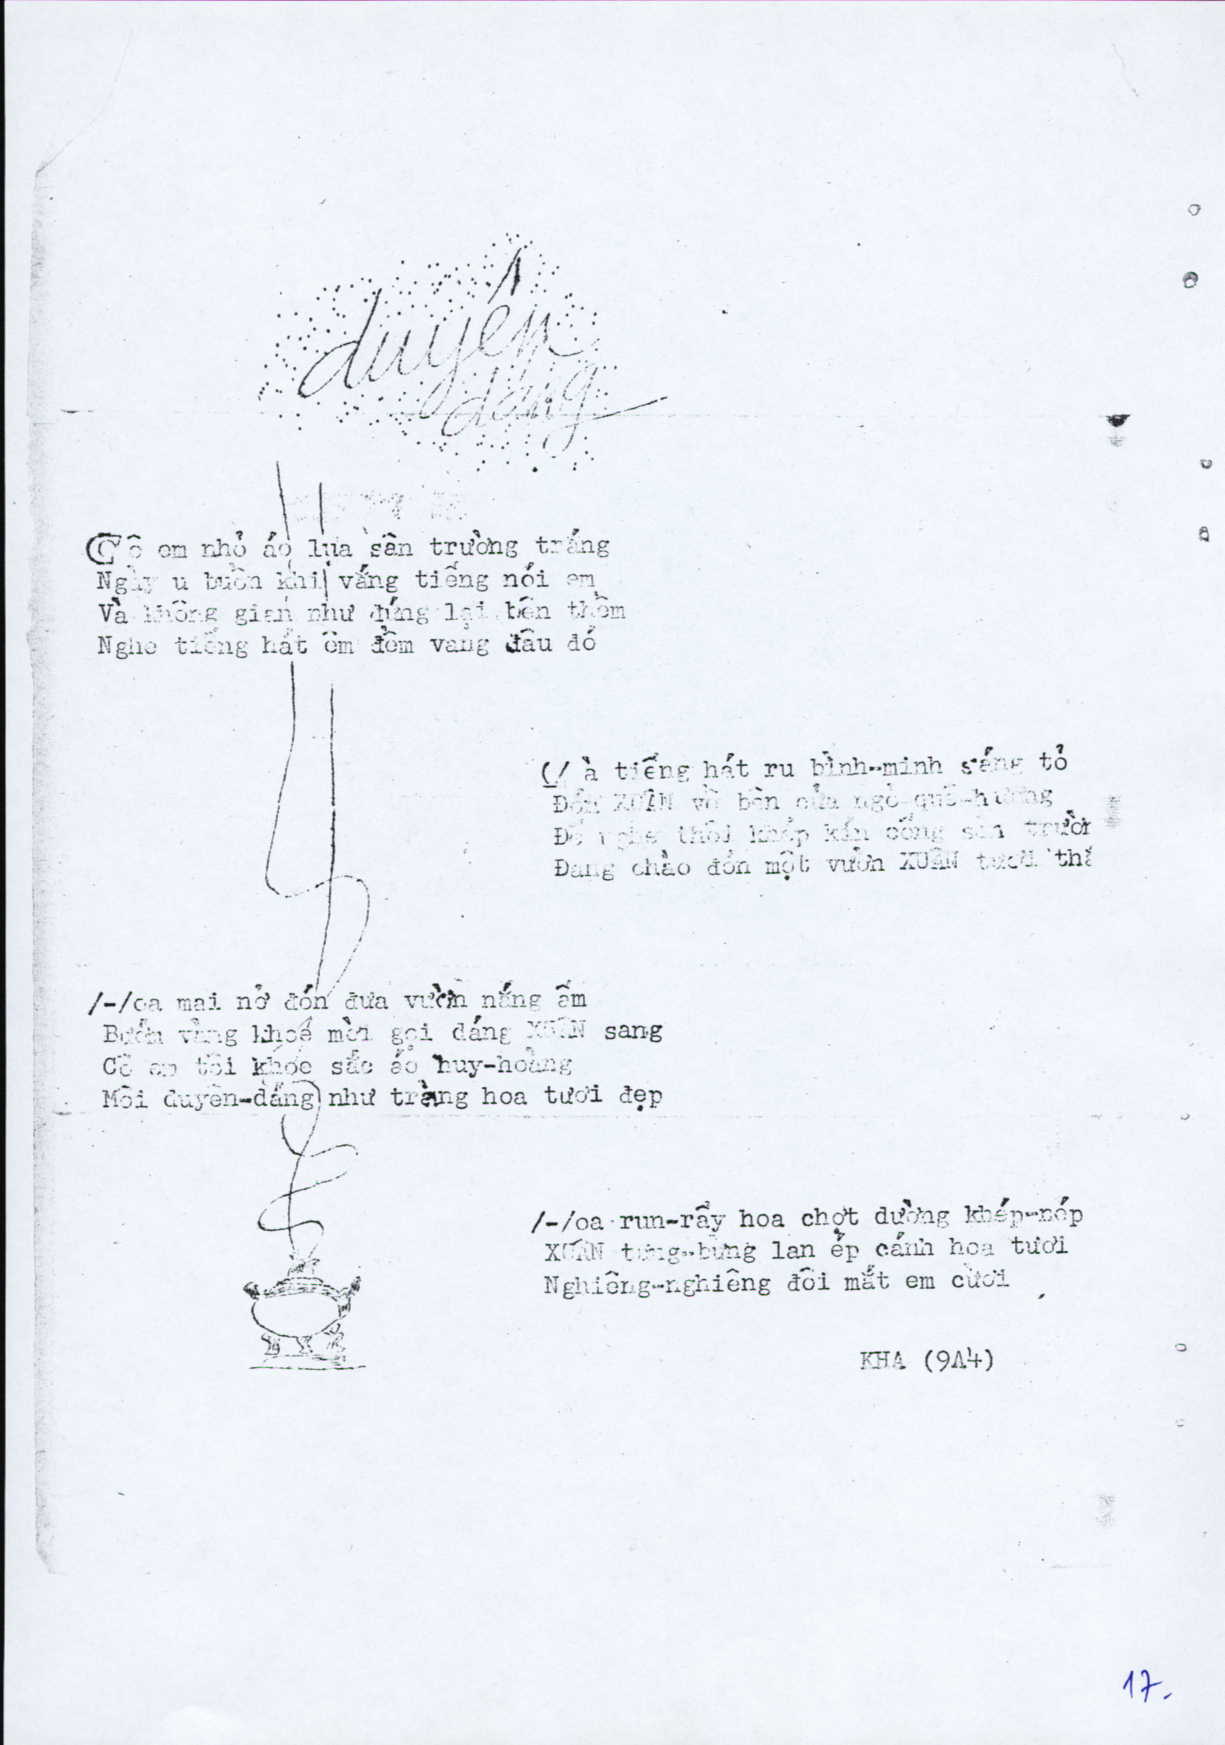 duyên
dáng
Cô em nhỏ áo lụa sân trường trắng
Ngày u buồn khi vắng tiếng nói em
Và không gian như đứng lại bên thềm
Nghe tiếng hát êm đềm vang đâu đó
Và tiếng hát ru bình-minh sáng tỏ
Đón XUÂN về bên cửa ngỏ quê-hương
Để nghe thôi khép kín cổng sân trườn
Đang chào đón một vườn XUÂN tươi thắ
Hoa mai nở đón đưa vườn nắng ấm
Bướm vàng khoe mời gọi dáng XUÂN sang
Cô em tôi khoe sắc áo huy-hoàng
Môi duyên-dáng như tràng hoa tươi đẹp
Hoa run-rẩy hoa chợt dường khép-nép
XUÂN tưng-bừng lan ép cánh hoa tươi
Nghiêng-nghiêng đôi mắt em cười
KHA (9A4)
17.